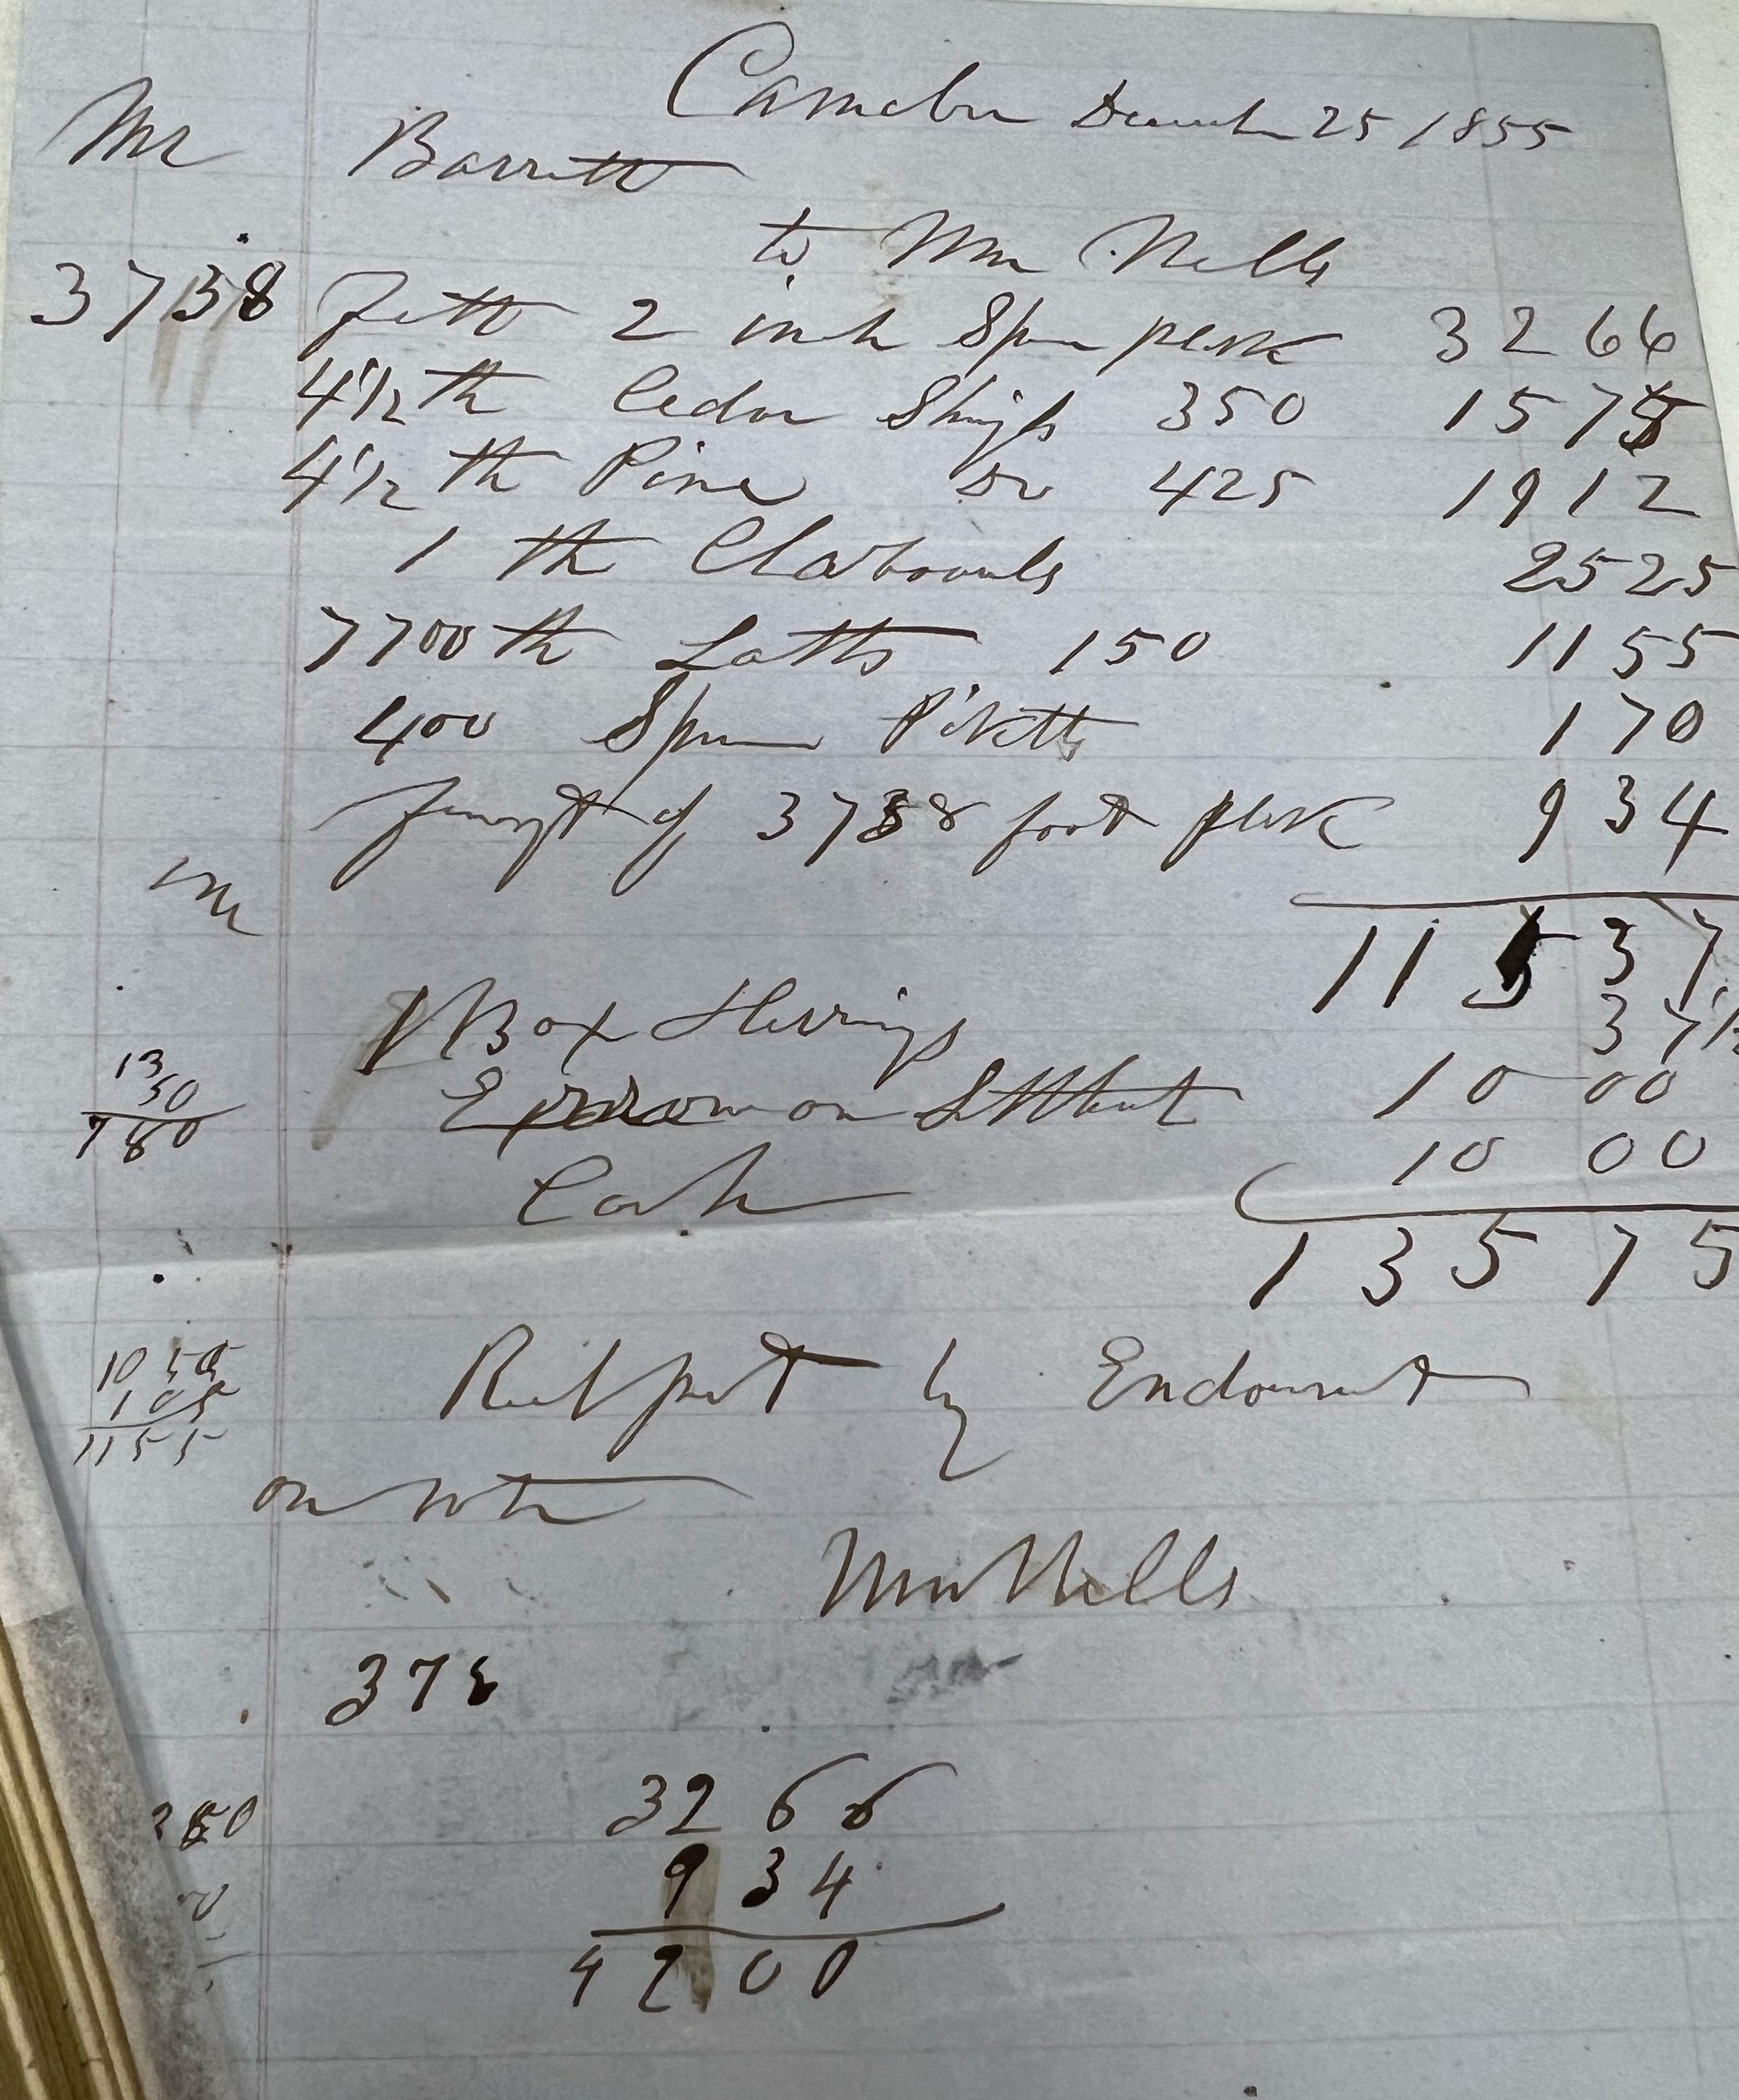 Camden December 25 1855
Mr Barrett
to Wm Nells
3738 feett 2 inch Spruce plank 3266
4 1/2 th Cedar Shingls 350 1575
4 1/2 th Pine Do 425 1912
1 th Clabourds 2525
7700 th Latts 150 1155
400 Spruce Piketts 170
freight of 3738 foot plank 934
11537
1 Box Herrings 37 1/2
Error on Settlement 10 00
Cash 10 00
135 75
1350
780
1050
105
1155
Recd payt by Endorsment
on note
Wm Nells
378
3266
934
4200